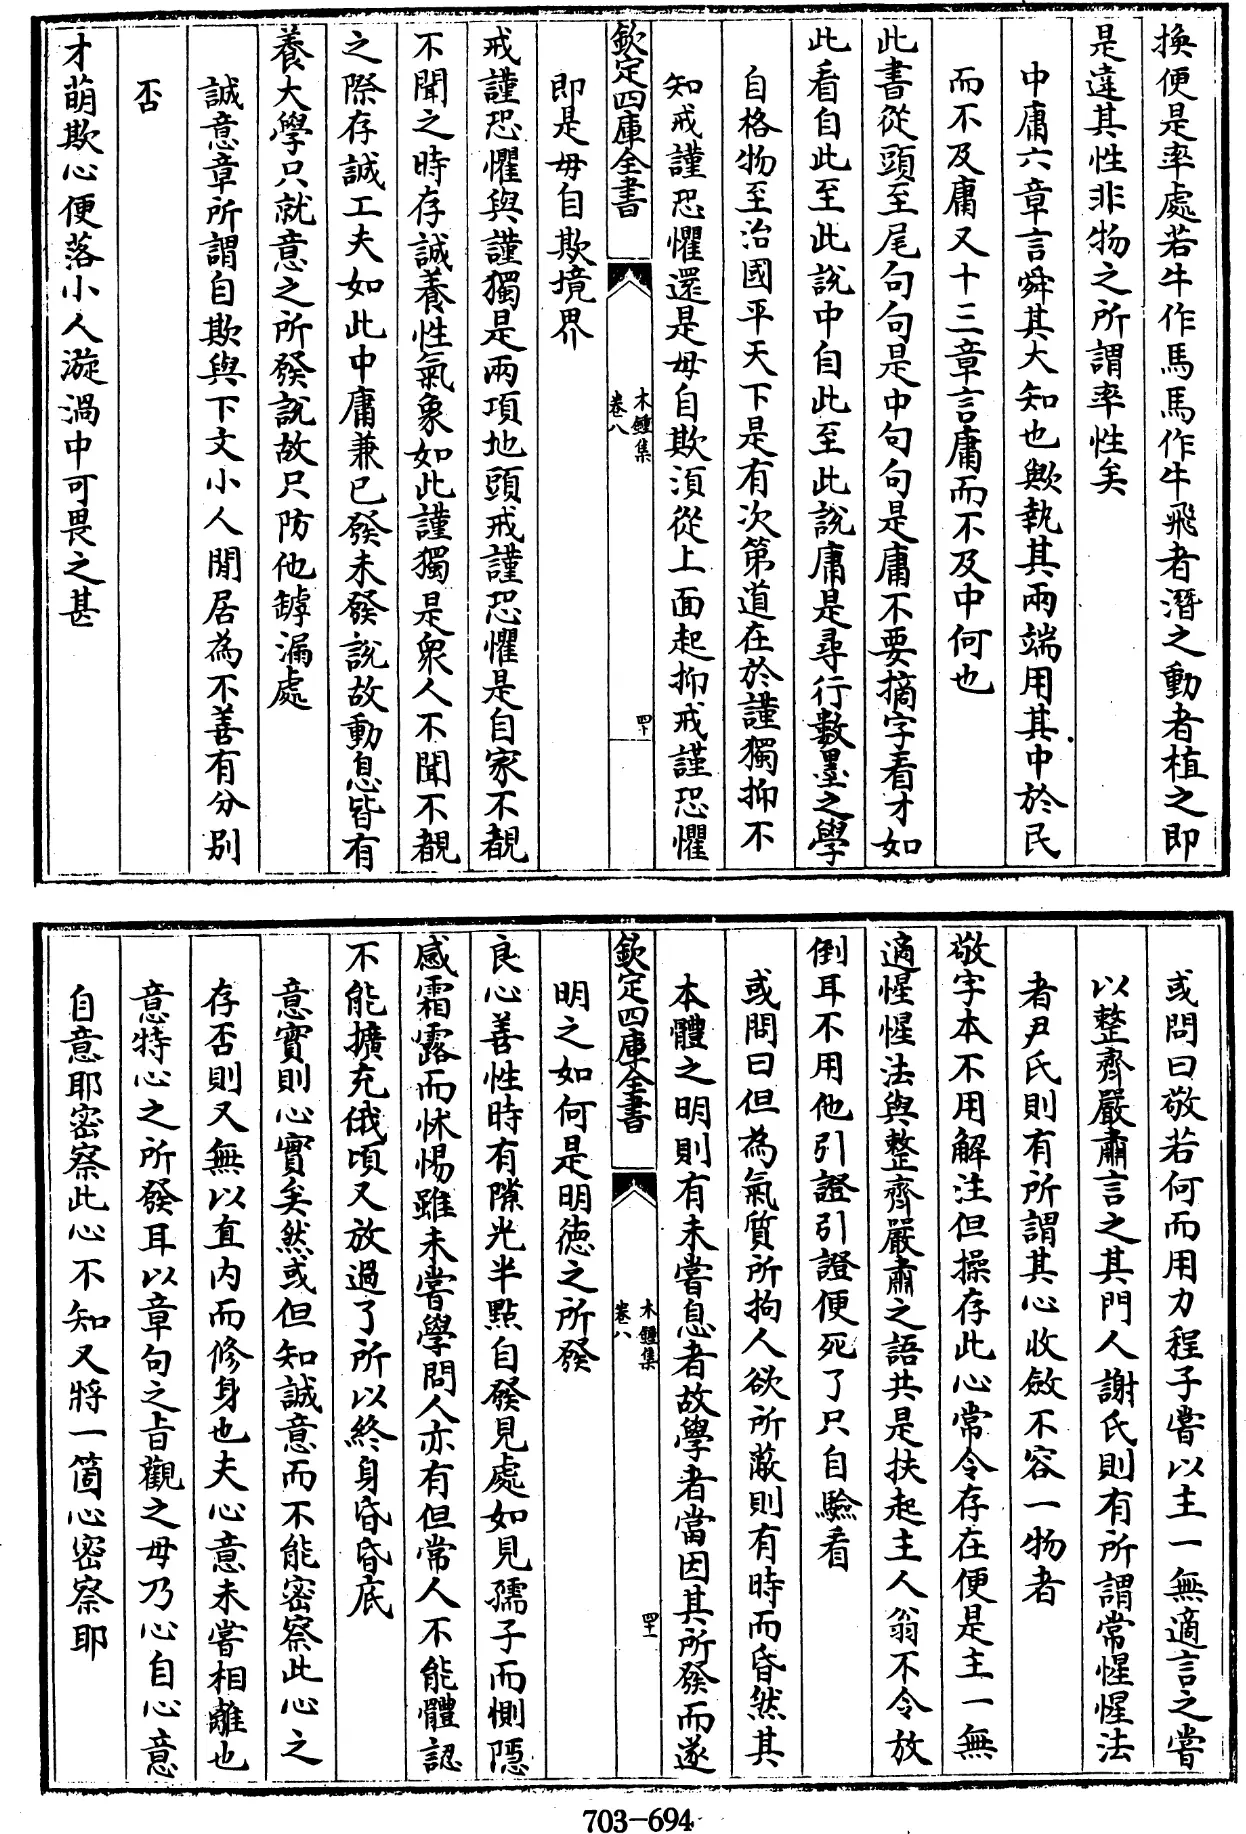 換便是率處若牛作馬馬作牛飛者潛之動者植之即
是違其性非物之所謂率性矣
中庸六章言舜其大知也歟執其兩端用其中於民
而不及庸又十三章言庸而不及中何也
此書從頭至尾句句是中句句是庸不要摘字看才如
此看自此至此說中自此至此說庸是尋行數墨之學
自格物至治國平天下是有次第道在於謹獨抑不
知戒謹恐懼還是毋自欺須從上面起抑戒謹恐懼
欽定四庫全書
木鍾集
卷八
四十
即是毋自欺境界
戒謹恐懼與謹獨是兩項地頭戒謹恐懼是自家不覩
不聞之時存誠養性氣象如此謹獨是衆人不聞不覩
之際存誠工夫如此中庸兼已發未發說故動息皆有
養大學只就意之所發說故只防他罅漏處
誠意章所謂自欺與下文小人閒居為不善有分别
否
才萌欺心便落小人漩渦中可畏之甚
或問曰敬若何而用力程子嘗以主一無適言之嘗
以整齊嚴肅言之其門人謝氏則有所謂常惺惺法
者尹氏則有所謂其心收斂不容一物者
敬字本不用解注但操存此心常令存在便是主一無
適惺惺法與整齊嚴肅之語共是扶起主人翁不令放
倒耳不用他引證引證便死了只自驗看
或問曰但為氣質所拘人欲所蔽則有時而昏然其
本體之明則有未嘗息者故學者當因其所發而遂
欽定四庫全書
木鍾集
卷八
四十一
明之如何是明德之所發
良心善性時有隙光半點自發見處如見孺子而惻隱
感霜露而怵惕雖未嘗學問人亦有但常人不能體認
不能擴充俄頃又放過了所以終身昏昏底
意實則心實矣然或但知誠意而不能密察此心之
存否則又無以直内而修身也夫心意未嘗相離也
意特心之所發耳以章句之旨觀之毋乃心自心意
自意耶密察此心不知又將一箇心密察耶
703-694